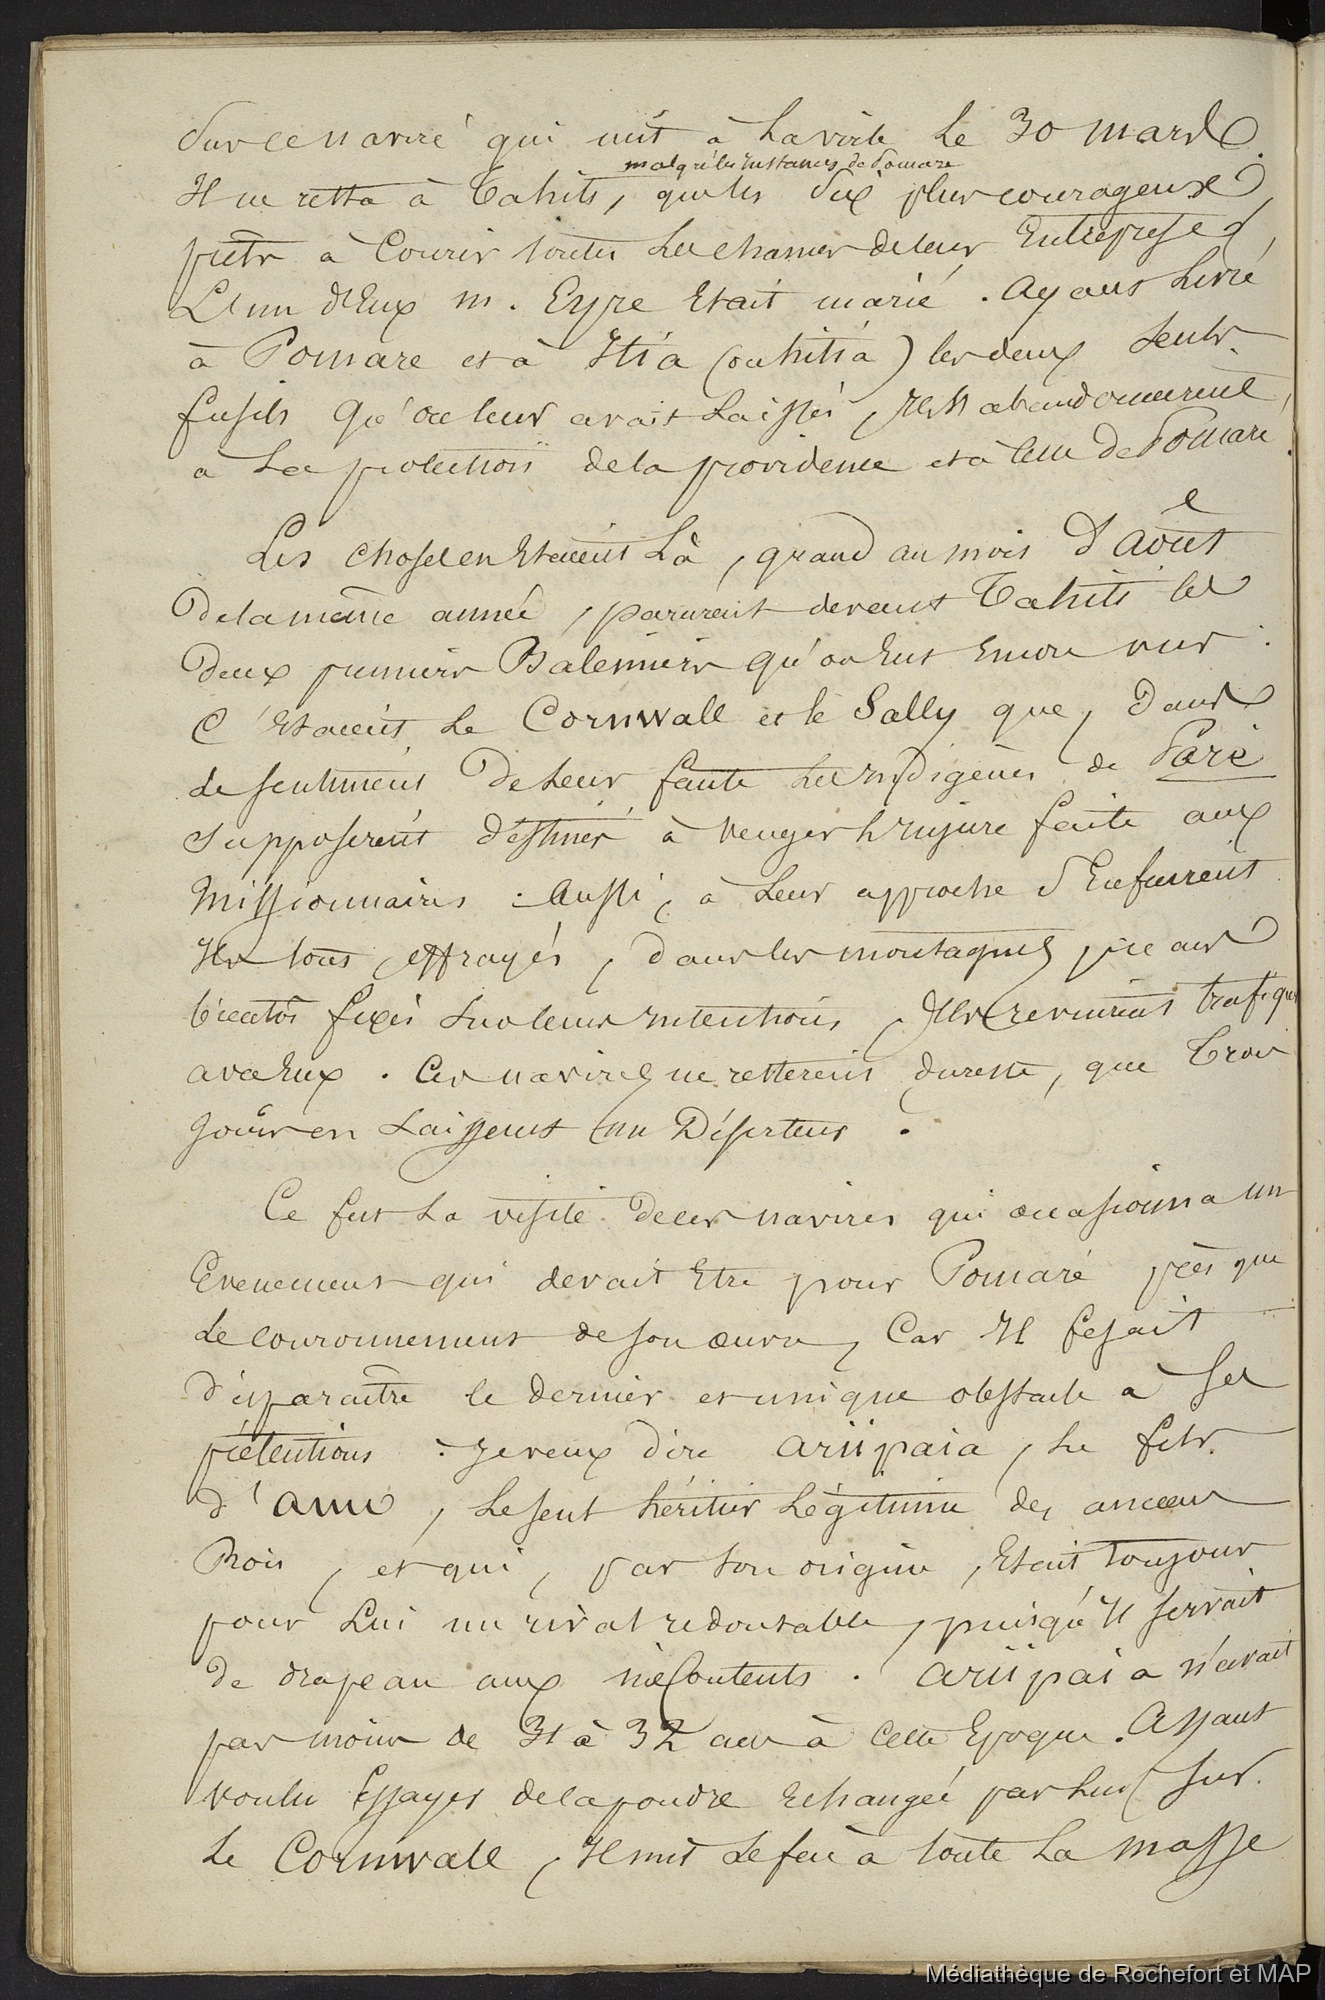 Sur ce navire qui mit à la voile le 30 mars.
malgré les instances de Pomare
Il ne resta à Tahiti, que les dix plus courageux,
prêts à Courir toutes les chances de leur Entreprise,
L'un d'Eux m. Eyre Etait marié. Ayant livré
à Pomare et à Itia (ou hitia) les deux seuls
fusils qu'on leur avait laissés, Ils s'abandonnerent,
a La protection de la providence et à celle de Pomare.
Les choses en Etaient Là, quand au mois d'Août
de la même année, parurent devant Tahiti les
Deux premiers Baleiniers qu'on Eut Encore vus.
C'Etaient Le Cornwall et le Sally que, dans
le sentiment De leur faute les Indigènes de Paré
supposerent destinés à venger L'Injure faite aux
Missionnaires : Aussi, à leur approche s'Enfuirent
Ils tous effrayés, dans les montagnes, mais
bientôt fixés sur leurs intentions, Ils revinrent trafiquer
avec Eux. Ces navires ne resterent, du reste, que Trois
jours en Laissant un Déserteur.
Ce fut La visite de ces navires qui occasionna un
Evenement qui devait Etre pour Pomaré presque
le couronnement de son œuvre, Car Il fesait
disparaître le dernier et unique obstacle à ses
prétentions : je veux dire Ariipaia, le fils
d'Amo, le seul héritier Légitime des anciens
Rois, et qui, par son origine, Etait toujours
pour Lui un rival redoutable, puisqu'Il servait
de drapeau aux mécontents. Ariipaia n'avait
pas moins de 31 à 32 ans à cette Epoque. Ayant
voulu Essayer de la poudre Echangée par lui sur
le Cornwall, Il mit le feu à toute la masse
Médiathèque de Rochefort et MAP